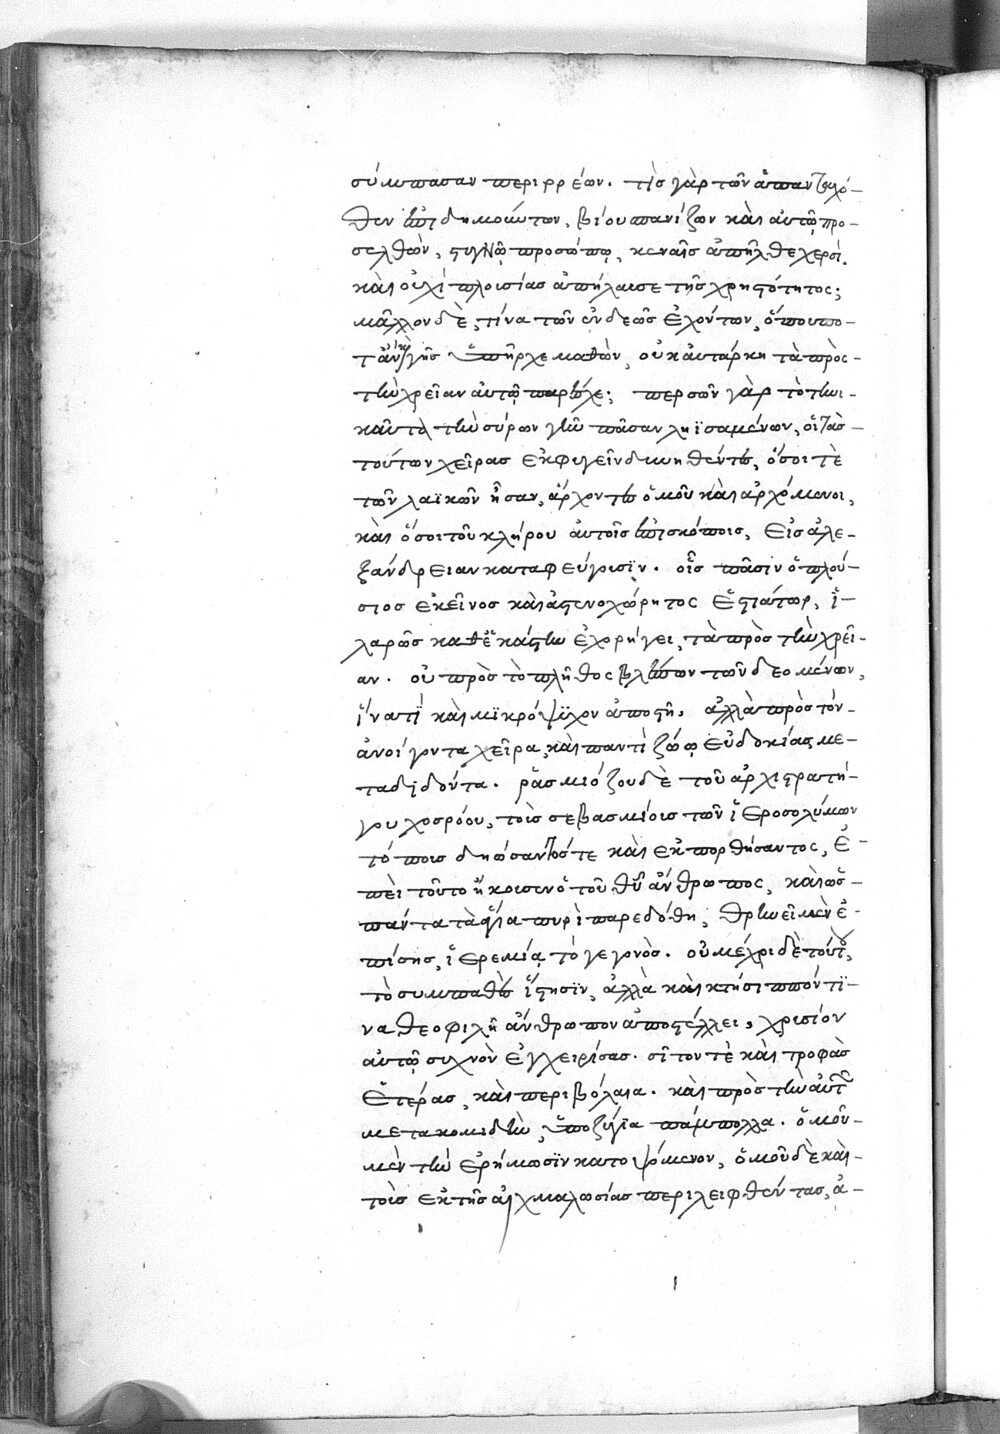 σύμπασαν περιρρέων. τίς γὰρ τῶν ἁπανταχό-
θεν ἐπιδημούντων, βίου σπανίζων καὶ αὐτῷ προ-
σελθὼν, στυγνῷ προσώπῳ, κεναῖς ἀπῆλθε χερσί.
καὶ οὐχὶ πλουσίας ἀπήλαυσε τῆς χρηστότητος;
μᾶλλον δὲ, τίνα τῶν ἐνδεῶς ἐχόντων, ὅπου πο-
τ' ἂν τῆς γῆς ὑπῆρχε μαθὼν, οὐκ αὐτάρκη τὰ πρὸς
τὴν χρείαν αὐτῷ παρέσχε; περσῶν γὰρ τὸ τηνι-
καῦτα τὴν σύρων γῆν πᾶσαν ληϊσαμένων, οἱ τὰς
τούτων χεῖρας ἐκφυγεῖν δυνηθέντες, ὅσοι τὲ
τῶν λαϊκῶν ἦσαν, ἄρχοντες ὁμοῦ καὶ ἀρχόμενοι,
καὶ ὅσοι τοῦ κλήρου αὐτοῖς ἐπισκόποις, εἰς ἀλε-
ξάνδρειαν καταφεύγουσϊν. οἷς πᾶσιν ὁ πλού-
σιος ἐκεῖνος καὶ ἀστενοχώρητος ἑστιάτωρ, ἱ-
λαρῶς καθ' ἑκάστην ἐχορήγει, τὰ πρὸς τὴν χρεί-
αν. οὐ πρὸς τὸ πλῆθος βλέπων τῶν δεομένων,
ἵνα τὶ καὶ μικρόψυχον ἀποστῇ, ἀλλὰ πρὸς τὸν
ἀνοίγοντα χεῖρα, καὶ παντὶ ζώῳ εὐδοκίας με-
ταδιδόντα. ῥασμιόζου δὲ τοῦ ἀρχιστρατή-
γου χοσρόου, τοῖς σεβασμίοις τῶν ἱεροσολύμων
τόποις δηώσαντός τε καὶ ἐκπορθήσαντος, ἐ-
πεὶ τοῦτο ἤκουσεν ὁ τοῦ θῦ ἄνθρωπος, καὶ ὡς
πάντα τὰ ἅγια πυρὶ παρεδόθη, θρηνεῖ μὲν ἐ-
πίσης, ἱερεμίᾳ τὸ γεγονὸς. οὐ μέχρι δὲ τούτου,
τὸ συμπαθὲς ἵστησϊν, ἀλλὰ καὶ κτήσιππόν τϊ-
να θεοφιλῆ ἄνθρωπον ἀποστέλλει, χρυσίον
αὐτῷ συχνὸν ἐγχειρίσας. σῖτον τὲ καὶ τροφὰς
ἑτέρας, καὶ περιβόλαια. καὶ πρὸς τὴν αὐτῶν
μετακομιδὴν, ὑποζύγια πάμπολλα. ὁμοῦ
μὲν τὴν ἐρήμωσϊν κατοψόμενον, ὁμοῦ δὲ καὶ
τοῖς ἐκ τῆς αἰχμαλωσίας περιλειφθέντας, ἀ-